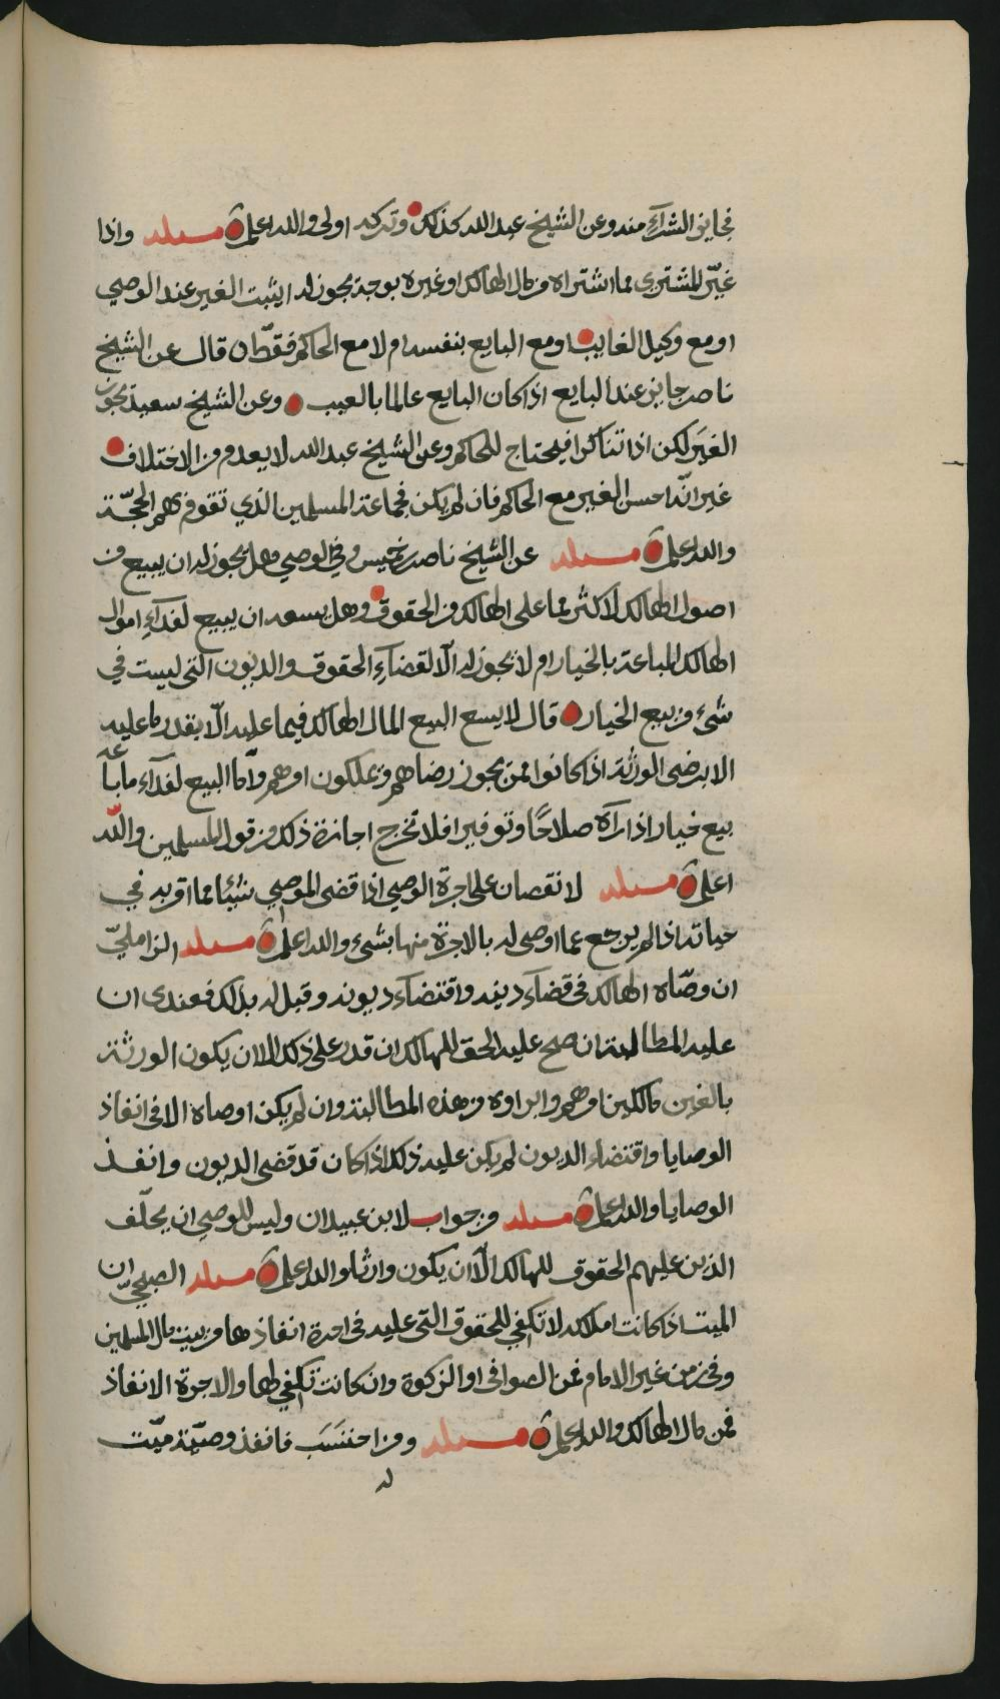 فجايز الشرآء منه وعن الشيخ عبدالله كذلك وتركه اولى والله اعلم مسئله واذا
غيّر المشتري مما اشتراه من مال الهالك او غيره بوجه يجوز له ايثبت الغير عند الوصي
او مع وكيل الغايب او مع البايع بنفسه ام لا مع الحاكم فقط قال عن الشيخ
ناصر جايز عند البايع اذا كان البايع عالما بالعيب وعن الشيخ سعيد يجوز
الغير لكن اذا تناكرا فيحتاج للحاكم وعن الشيخ عبدالله لا يعدم من الاختلاف
غير انّه احسن الغير مع الحاكم فان لم يكن فجماعة المسلمين الذي تقوم بهم الحجّة
والله اعلم مسئله عن الشيخ ناصر بن خميس وفي الوصي وهل يجوز له ان يبيع من
اصول الهالك لاكثر مما على الهالك من الحقوق وهل يسعه ان يبيع لفدآء اموال
الهالك المباعة بالخيار ام لا يجوز له الّا لقضآء الحقوق والديون التي ليست في
شيء من بيع الخيار قال لا يسع البيع المال الهالك فيما عليه الّا بقدر ما عليه
الا برضى الورثة اذا كانوا ممن يجوز رضاهم ويملكون امرهم وامّا البيع لفدآء ما باعه
بيع خيار اذا رآه صلاحًا وتوفيرا فلا تخرج اجازة ذلك من قول المسلمين والله
اعلم مسئله لا نقصان على اجرة الوصي اذا قضى الموصي شيئا مما اقر به في
حياته اذا لم يرجع عما اوصى له بالاجرة منها بشيء والله اعلم مسئله الزامليّ
ان وصّاه الهالك في قضآء دينه واقتضآء ديونه وقبل له بذلك فعندى ان
عليه المطالبة ان صح عليه الحق للهالك ان قدر على ذلك الا ان يكون الورثة
بالغين مالكين امرهم وابراوه من هذه المطالبة وان لم يكن اوصاه الا في انفاذ
الوصايا واقتضاء الديون لم يكن عليه ذلك اذا كان قد قضى الديون وانفذ
الوصايا والله اعلم مسئله ومن جواب لابن عبيدان وليس للوصي ان يحلّف
الذين عليهم الحقوق للهالك الّا ان يكون وارثا والله اعلم مسئله الصبحيّ ان
الميت اذا كانت املاكه لا تكفي للحقوق التي عليه في اجرة انفاذها من بيت مال المسلمين
وفي زمن غير الامام فمن الصوافى او الزكوة وان كانت تكفي لها والاجرة الانفاذ
فمن مال الهالك والله اعلم مسئله ومن احتسب فانفذ وصيّة ميّت
له